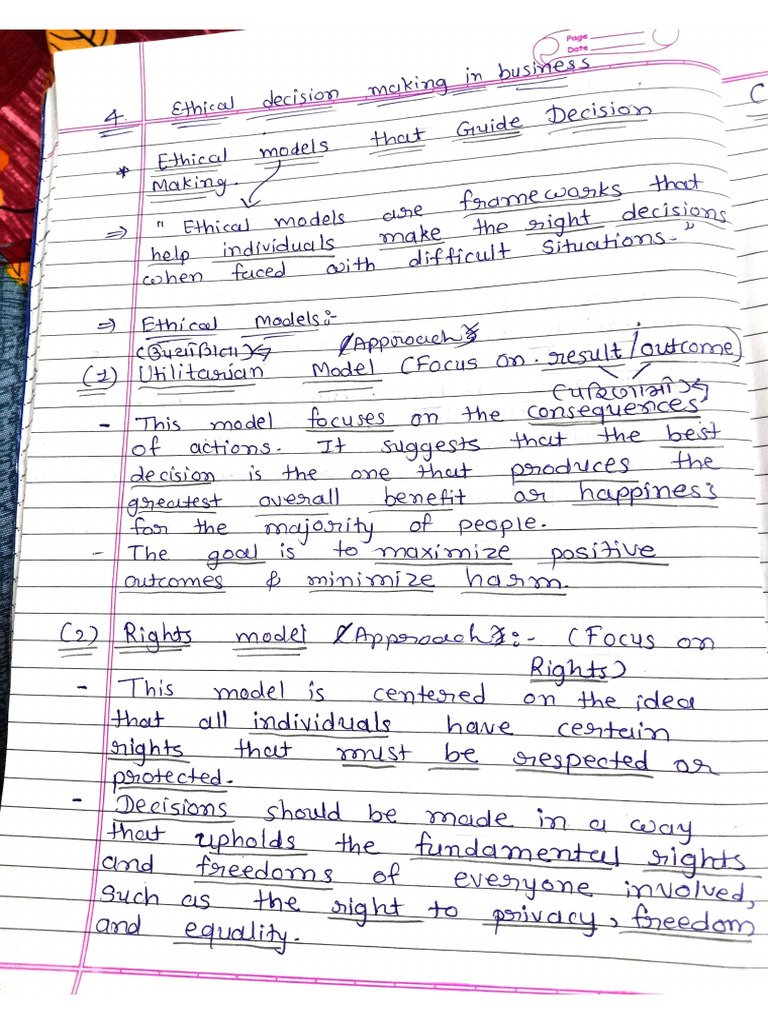 Page
Date
4. Ethical decision making in business
* Ethical models that Guide Decision
Making.
⇒ " Ethical models are frameworks that
help individuals make the right decisions
when faced with difficult situations."
⇒ Ethical Models:-
(उपयोगिता) {Approach}
(1) Utilitarian Model (Focus on result/outcome)
(परिणामों)
- This model focuses on the consequences
of actions. It suggests that the best
decision is the one that produces the
greatest overall benefit or happiness
for the majority of people.
- The goal is to maximize positive
outcomes & minimize harm.
(2) Rights model {Approach}:- (Focus on
Rights)
- This model is centered on the idea
that all individuals have certain
rights that must be respected or
protected.
- Decisions should be made in a way
that upholds the fundamental rights
and freedoms of everyone involved,
such as the right to privacy, freedom
and equality.
C